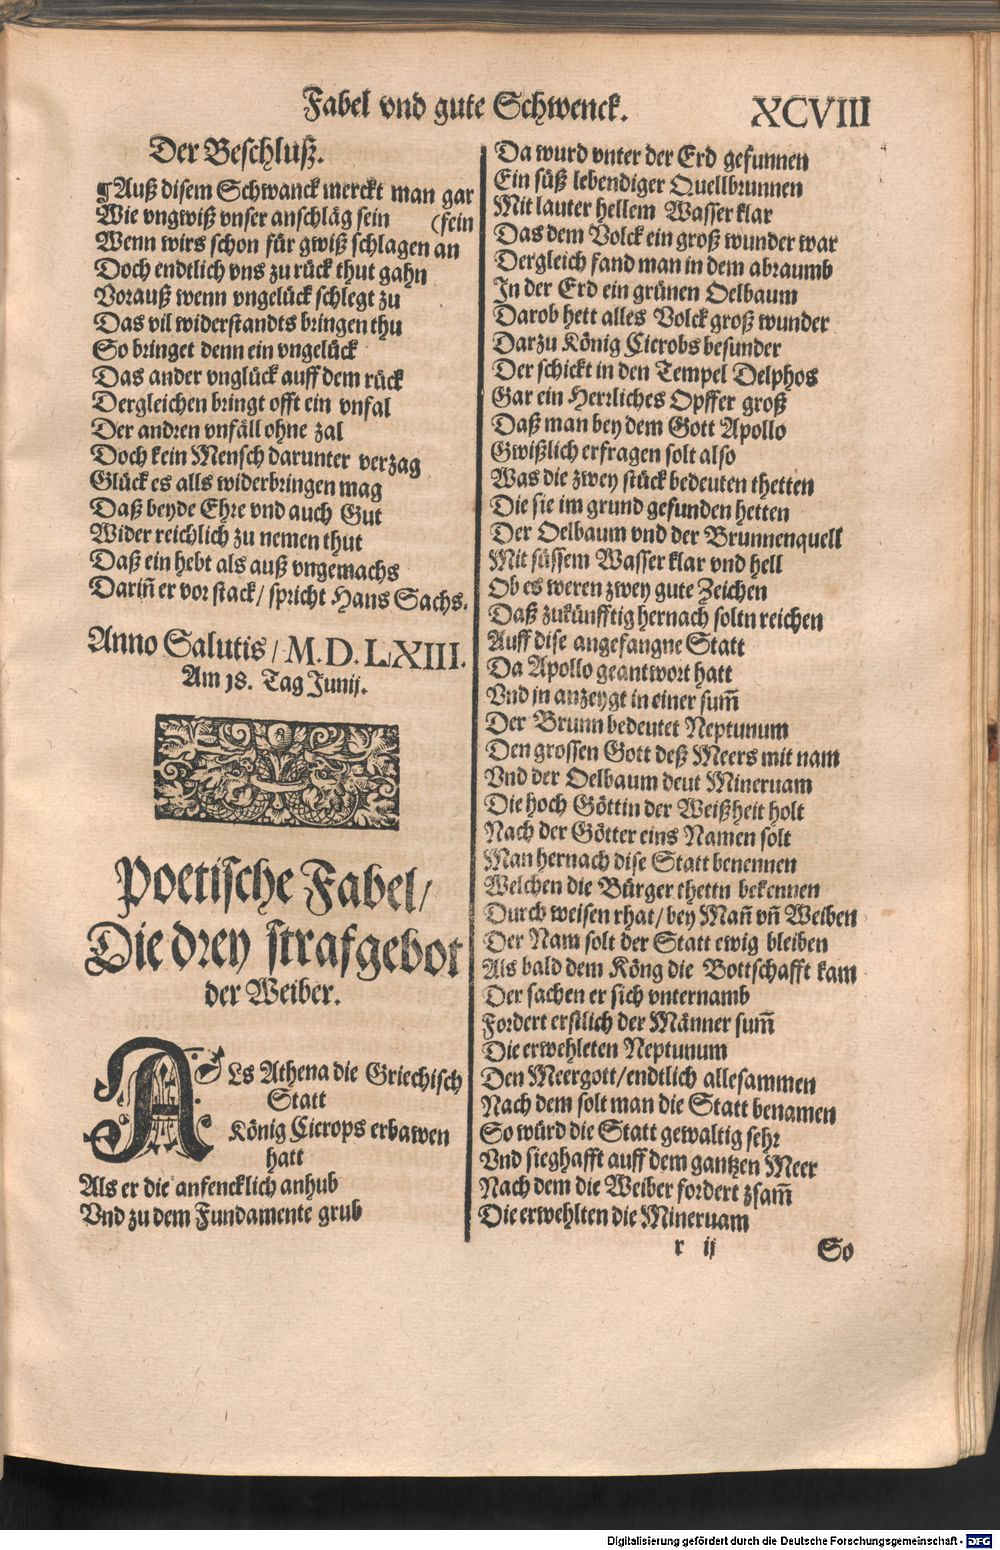 Fabel vnd gute Schwenck.
XCVIII
Der Beschluß.
¶ Auß disem Schwanck merckt man gar
Wie vngwiß vnser anschläg sein (fein
Wenn wirs schon für gwiß schlagen an
Doch endtlich vns zu rück thut gahn
Vorauß wenn vngelück schlegt zu
Das vil widerstandts bringen thu
So bringet denn ein vngelück
Das ander vnglück auff dem rück
Dergleichen bringt offt ein vnfal
Der andren vnfäll ohne zal
Doch kein Mensch darunter verzag
Glück es alls widerbringen mag
Daß beyde Ehre vnd auch Gut
Wider reichlich zu nemen thut
Daß ein hebt als auß vngemachs
Dariñ er vor stack/ spricht Hans Sachs.
Anno Salutis/ M.D.LXIII.
Am 18. Tag Junij.
Poetische Fabel/
Die drey strafgebot
der Weiber.
ALs Athena die Griechisch
Statt
König Cicrops erbawen
hatt
Als er die anfencklich anhub
Vnd zu dem Fundamente grub
Da wurd vnter der Erd gefunnen
Ein süß lebendiger Quellbrunnen
Mit lauter hellem Wasser klar
Das dem Volck ein groß wunder war
Dergleich fand man in dem abraumb
In der Erd ein grünen Oelbaum
Darob hett alles Volck groß wunder
Darzu König Cicrobs besunder
Der schickt in den Tempel Delphos
Gar ein Herrliches Opffer groß
Daß man bey dem Gott Apollo
Gwißlich erfragen solt also
Was die zwey stück bedeuten thetten
Die sie im grund gefunden hetten
Der Oelbaum vnd der Brunnenquell
Mit süssem Wasser klar vnd hell
Ob es weren zwey gute Zeichen
Daß zukünfftig hernach soltn reichen
Auff dise angefangne Statt
Da Apollo geantwort hatt
Vnd jn anzeygt in einer sum̃
Der Brunn bedeutet Neptunum
Den grossen Gott deß Meers mit nam
Vnd der Oelbaum deut Mineruam
Die hoch Göttin der Weißheit holt
Nach der Götter eins Namen solt
Man hernach dise Statt benennen
Welchen die Bürger thettn bekennen
Durch weisen rhat/ bey Mañ vñ Weiben
Der Nam solt der Statt ewig bleiben
Als bald dem Köng die Bottschafft kam
Der sachen er sich vnternamb
Fordert erstlich der Männer sum̃
Die erwehleten Neptunum
Den Meergott/ endtlich allesammen
Nach dem solt man die Statt benamen
So würd die Statt gewaltig sehr
Vnd sieghafft auff dem gantzen Meer
Nach dem die Weiber fordert zsam̃
Die erwehlten die Mineruam
r ij
So
Digitalisierung gefördert durch die Deutsche Forschungsgemeinschaft - DFG